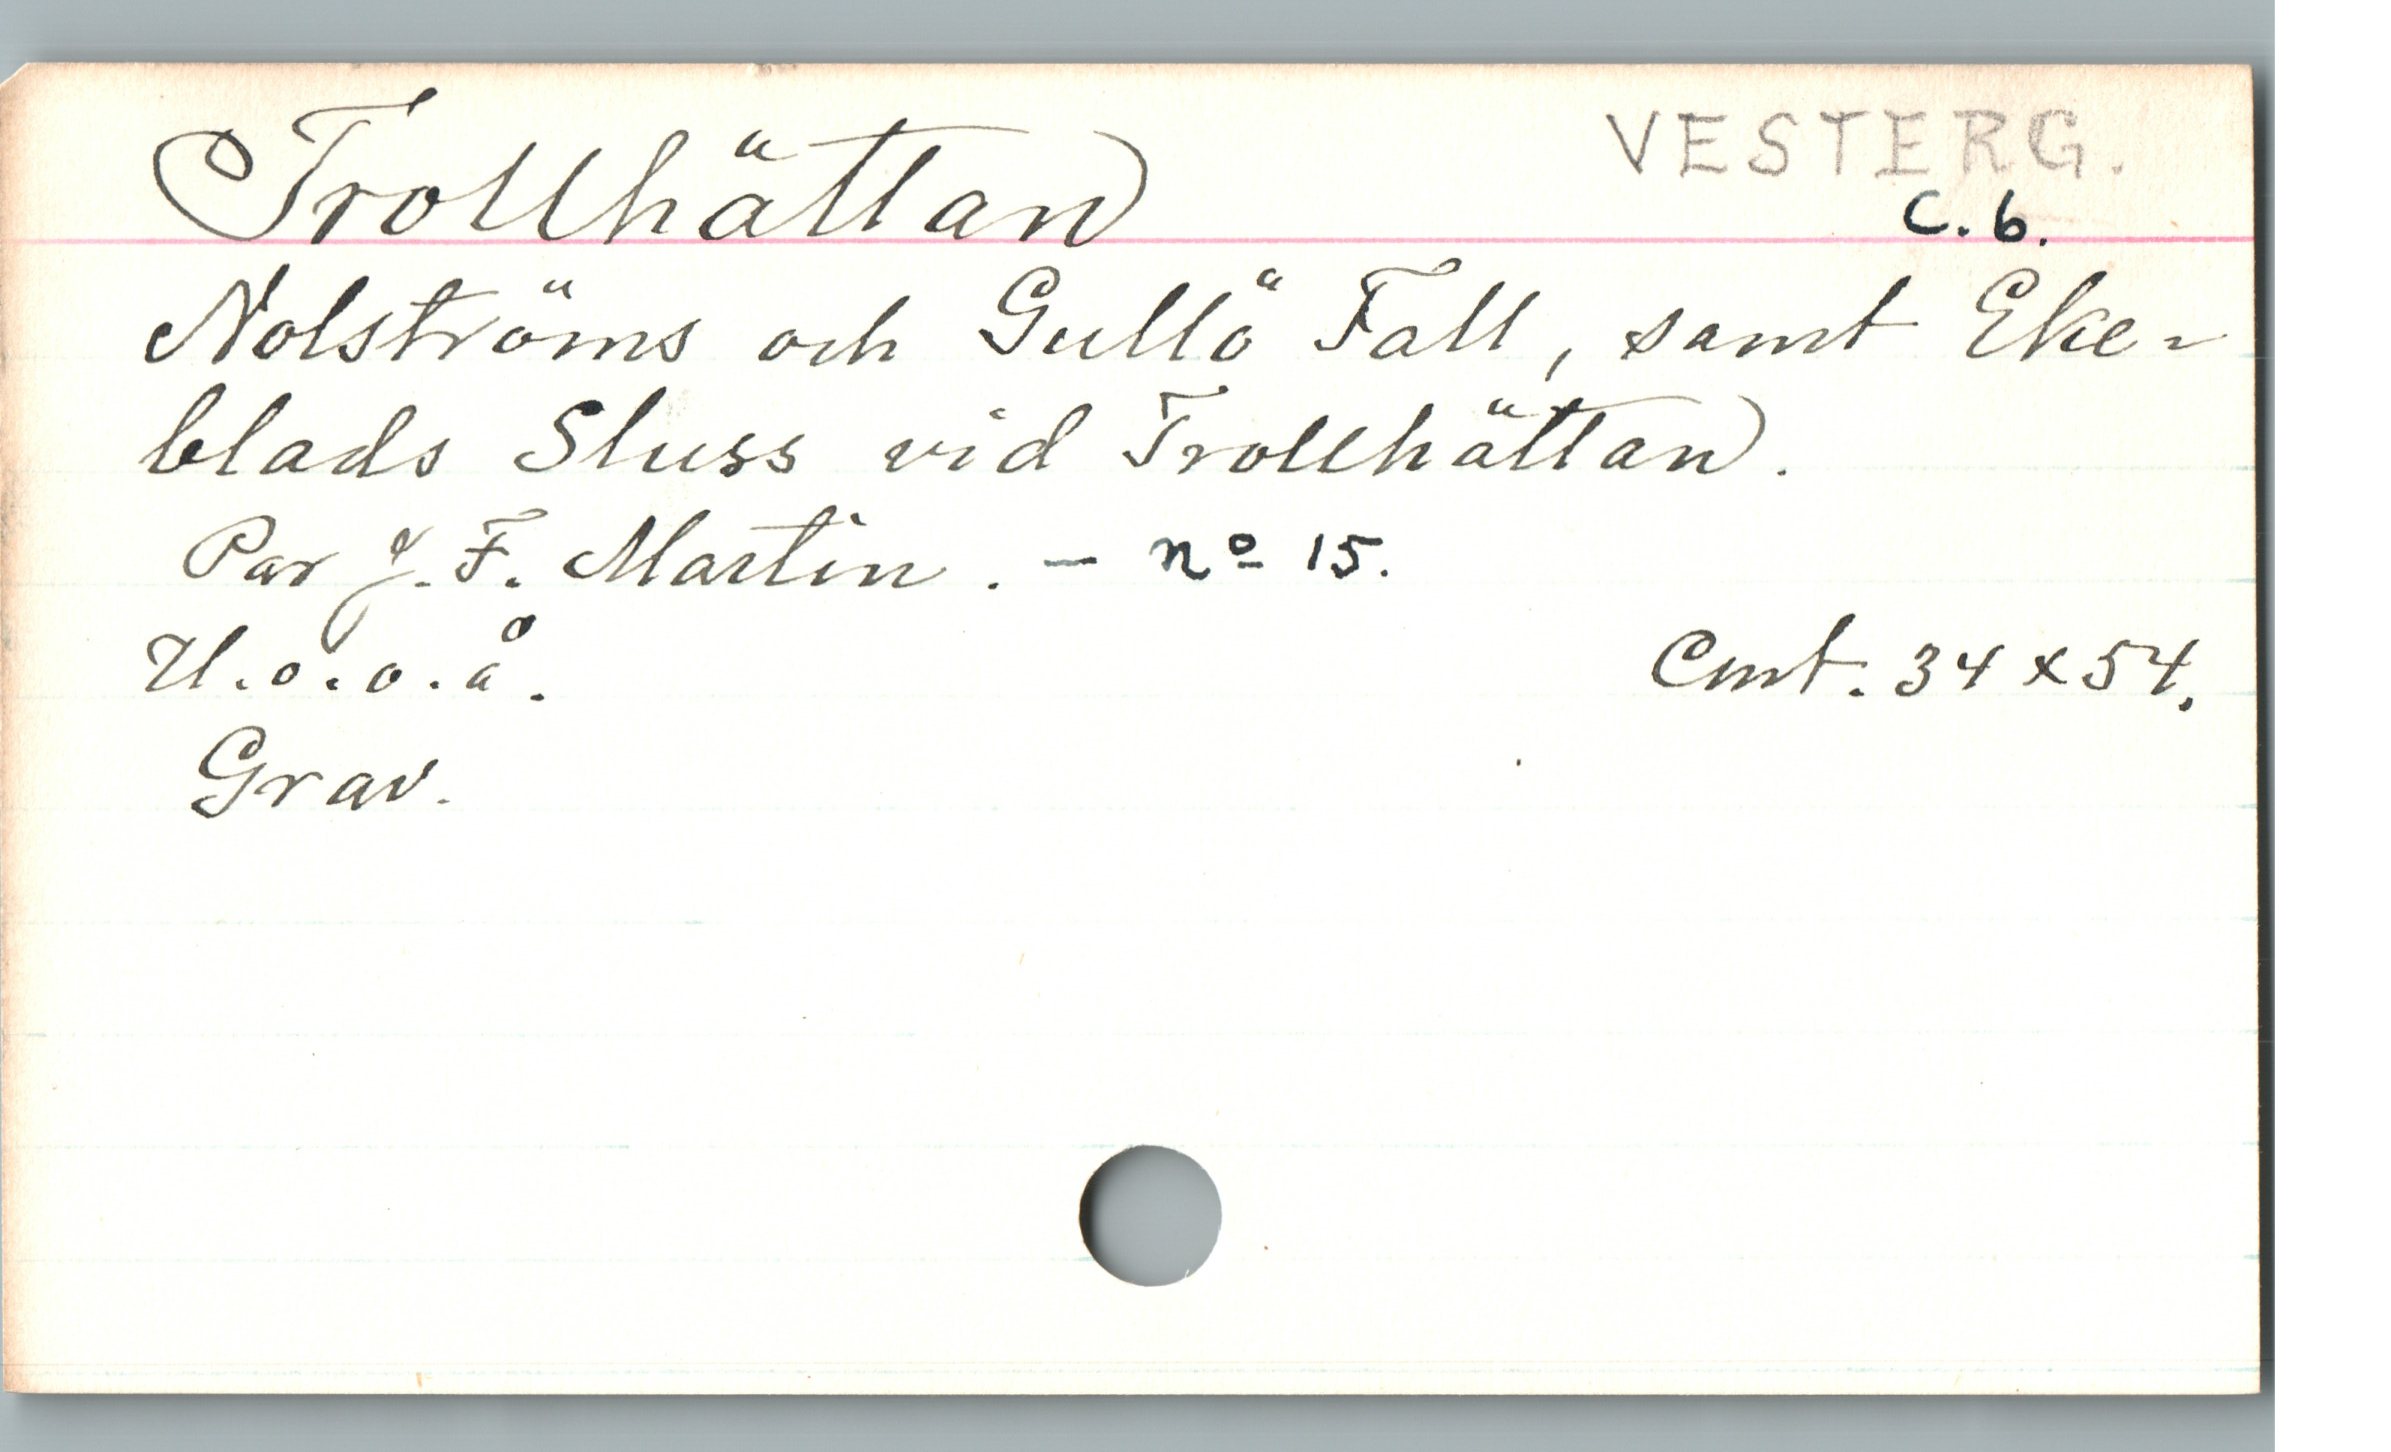 Trollhättan
VESTERG.
C. 6.
Nolströms och Gullö Fall, samt Eke-
blads Sluss vid Trollhättan.
Par J. F. Martin. - nº 15.
U.o.o.å.
Cmt. 34 x 54.
Grav.